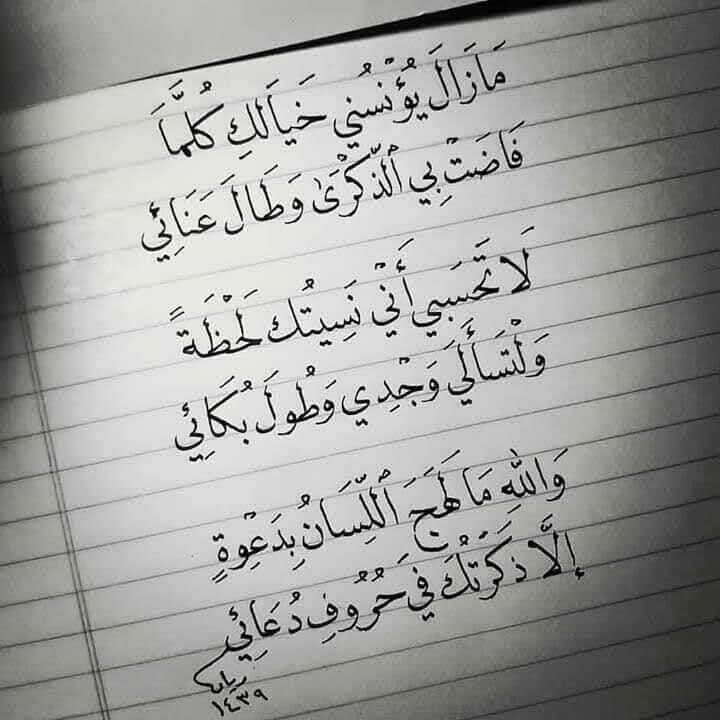 مَازَالَ يُؤْنِسُنِي خَيَالَكِ كُلَّمَا
فَاضَتْ بِي ٱلذِّكْرَىٰ وَطَالَ عَنَائِي
لَا تَحْسَبِي أَنِّي نَسِيتُك لَحْظَةً
وَلْتَسْأَلِي وَجْدِي وَطُولَ بُكَائِي
وَاللهِ مَا لَهَجَ ٱللِّسَانُ بِدَعْوِةٍ
إلَّا ذَكَرْتُكِ فِي حُرُوفِ دُعَائِي
١٤٣٩